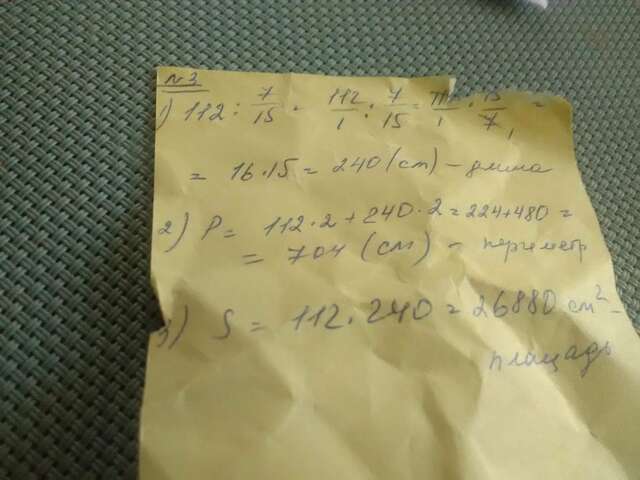 №3
1) 112 : 7/15 = 112/1 : 7/15 = 112/1 · 15/7 =
= 16·15 = 240 (см) – длина
2) P = 112·2 + 240·2 = 224 + 480 =
= 704 (см) – периметр
3) S = 112·240 = 26880 см² –
площадь